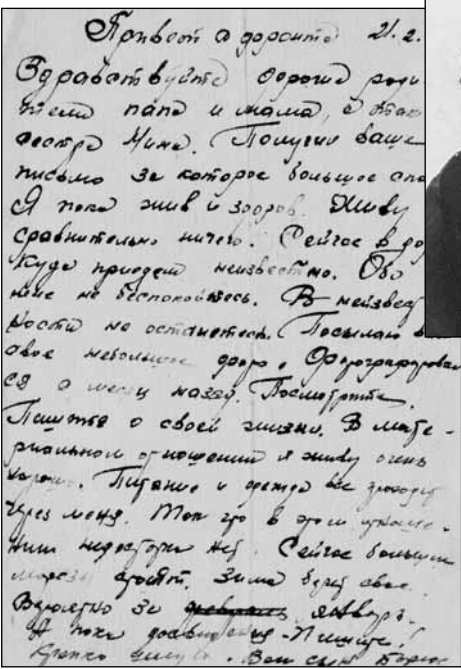 Привет с фронта 21.2.
Здравствуйте дорогие роди-
тели папа и мама, а также
сестра Нина. Получил ваше
письмо за которое большое спа
Я пока жив и здоров. Живу
сравнительно ничего. Сейчас в до
Куда приедем неизвестно. Обо
мне не беспокойтесь. В неизвест
ности не останетесь. Посылаю в
свое небольшое фото. Фотографировал
ся месяц назад. Посмотрите.
Пишите о своей жизни. В мате-
риальном отношении я живу очень
хорошо. Питание и одежда все проходит
через меня. Так что в этом отноше-
нии недостатка нет. Сейчас большие
морозы стоят. Зима берет свое.
Вероятно за январь.
А пока досвидания. Пишите!
Крепко целую. Ваш сын